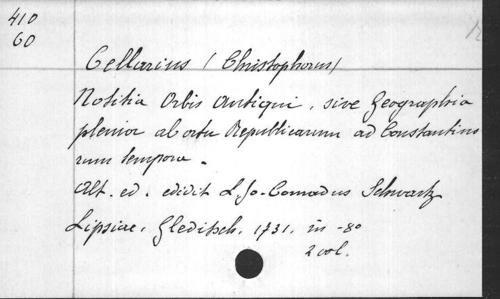 410
60
Cellarius (Christophorus)
Notitia Orbis antiqui, sive Geographia
plenior ab ortu Republicarum ad Constantino
rum tempora.
Alt. ed. edidit L. Jo. Conradus Schwartz
Lipsiae, Gleditsch, 1731. in-8o
2 vol.